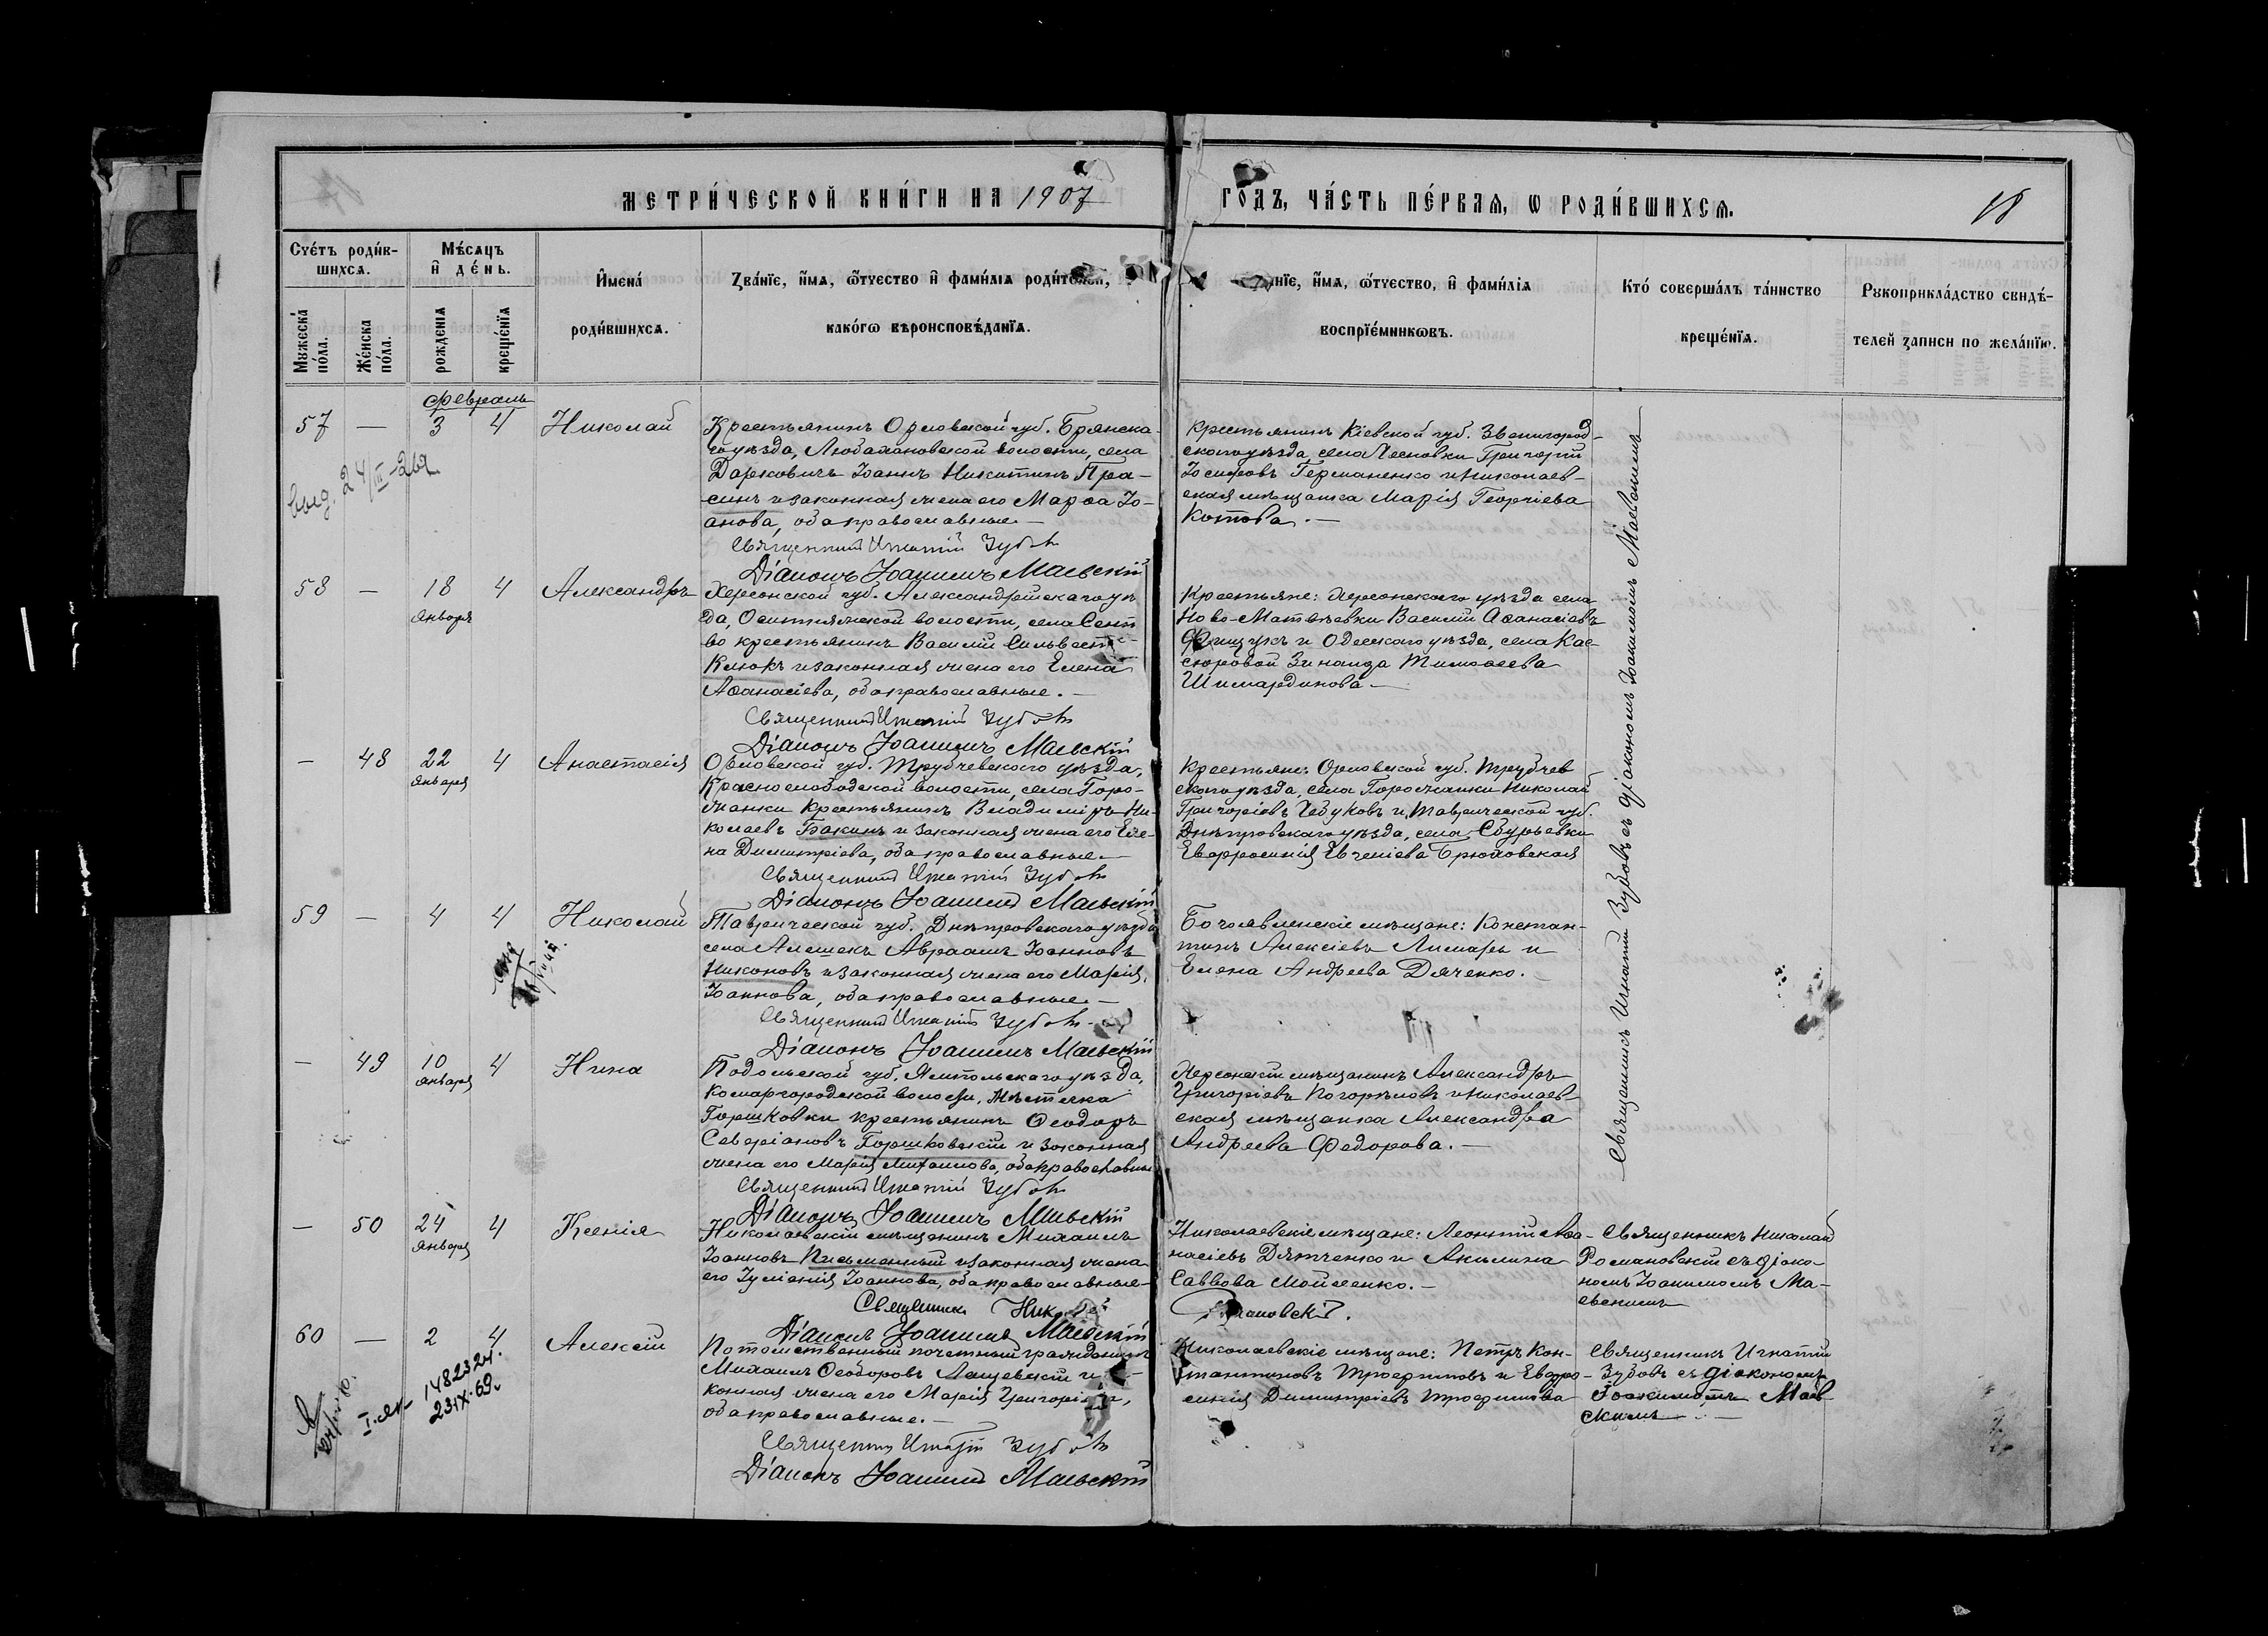 МЕТРИ́ЧЕСКОЙ КНИ́ГИ НА 1907 ГО́ДЪ, ЧА́СТЬ ПЕ́РВАЯ, Ѡ РОДИ́ВШИХСЯ.
18
Сче́тъ роди́в-
шихся.
Му́жеска по́ла.
Же́нска по́ла.
Мѣ́сяцъ
и҆ де́нь.
рожденія
креще́нїя
И҆мена́
роди́вшихся.
Зва́нїе, и҆́мя, ѻ҆́тчество и҆ фами́лїя роди́телей,
како́гѡ вѣроисповѣ́данїя.
нїе, и҆́мя, ѻ҆́тчество, и҆ фами́лїя
воспрїе́мниковъ.
Кто́ соверша́лъ та́инство
креще́нїя.
Рукоприкла́дство свидѣ́-
телей записи по жела́нїю.
Февраль
57 — 3 4 Николай
выд. 24/III-26г
Крестьянинъ Орловской губ. Брянска-
го уѣзда, Любахановской волости, села
Дарковичъ Іоаннъ Никитинъ Пра-
синъ и законная жена его Марѳа Іо-
анова, оба православные.—
Священникъ Игнатій Зубовъ
Діаконъ Іоакимъ Маевскій
Крестьянинъ Кіевской губ. Звенигород-
скаго уѣзда, села Лесновки Григорій
Іосифовъ Германенко и Николаев-
ская мѣщанка Марія Георгіева
Котова.—
Священникъ Игнатій Зубовъ съ діакономъ Іоакимомъ Маевскимъ
58 — 18 4 Александръ
Января
Херсонской губ. Александрійскаго уѣ
зда, Оситняжской волости, села Сент
во крестьянинъ Василій Сильвест
Клюкъ и законная жена его Елена
Аѳанасіева, оба православные.—
Священникъ Игнатій Зубовъ
Діаконъ Іоакимъ Маевскій
Крестьяне: Херсонскаго уѣзда села
Ново-Матвѣевки Василій Аѳанасіевъ
Фищукъ и Одесскаго уѣзда, села Кас-
сюровой Зинаида Тимоѳеева
Шимардинова—
— 48 22 4 Анастасія
Января
Орловской губ. Трубчевскаго уѣзда,
Краснослободской волости, села Горо-
жанки крестьянинъ Владиміръ Ни-
колаевъ Бакинъ и законная жена его Еле-
на Димитріева, оба православные.—
Священникъ Игнатій Зубовъ
Діаконъ Іоакимъ Маевскій
Крестьяне: Орловской губ. Трубчев
скаго уѣзда, села Горожанки Николай
Григоріевъ Чебуковъ и Таврической губ.
Днѣпровскаго уѣзда, села Сбурьевки
Евфросинія Евгеніева Брюховская
59 — 4 4 Николай
Таврической губ. Днѣпровскаго уѣзда
села Алешекъ Авраамъ Іоанновъ
Никоновъ и законная жена его Марія
Іоаннова, оба православные.—
Священникъ Игнатій Зубовъ
Діаконъ Іоакимъ Маевскій
Богоявленскіе мѣщане: Констан-
тинъ Алексіевъ Лимарь и
Елена Андреева Дяченко.—
— 49 10 4 Нина
Января
Подольской губ. Ямпольскаго уѣзда,
Комаргородской волости, мѣстечка
Горшковки крестьянинъ Ѳеодоръ
Северіановъ Горшковскій и законная
жена его Марія Михаилова, оба православные
Священникъ Игнатій Зубовъ
Діаконъ Іоакимъ Маевскій
Херсонскій мѣщанинъ Александръ
Григоріевъ Погорѣловъ и Николаев-
ская мѣщанка Александра
Андреева Федорова.—
— 50 24 4 Ксенія
Января
Николаевскій мѣщанинъ Михаилъ
Іоанновъ Письменный и законная жена
его Іуліанія Іоаннова, оба православные—
Священникъ Николай Романовскій.
Діаконъ Іоакимъ Маевскій
Николаевскіе мѣщане: Леонтій Аѳа-
насіевъ Дятченко и Акилина
Саввова Мойсеенко.—
Священникъ Николай
Романовскій съ діако-
номъ Іоакимомъ Ма-
евскимъ
60 — 2 4 Алексій
I.ЯК 1482324.
23.IX.69.
Потомственный почетный гражданинъ
Михаилъ Ѳеодоровъ Лащевскій и
конная жена его Марія Григоріева,
оба православные.—
Священникъ Игнатій Зубовъ
Діаконъ Іоакимъ Маевскій
Николаевскіе мѣщане: Петръ Кон-
стантиновъ Трофимовъ и Евфро-
синія Димитріевъ Трофимова
Священникъ Игнатій
Зубовъ съ діакономъ
Іоакимомъ Маев
скимъ—